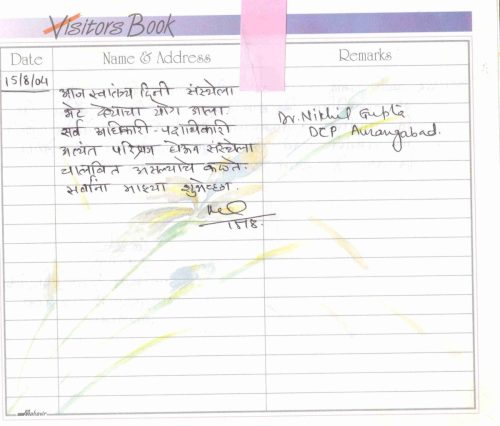 Visitors Book
Date Name & Address Remarks
15/8/04 आज स्वातंत्र्य दिनी संस्थेला
भेट देण्याचा योग आला.
सर्व अधिकारी पदाधिकारी
अत्यंत परिश्रम घेऊन संस्थेला
चालवित असल्याचे कळते.
सर्वांना माझ्या शुभेच्छा.
Dr. Nikhil Gupta
DCP Aurangabad.
15/8.
Mahavir